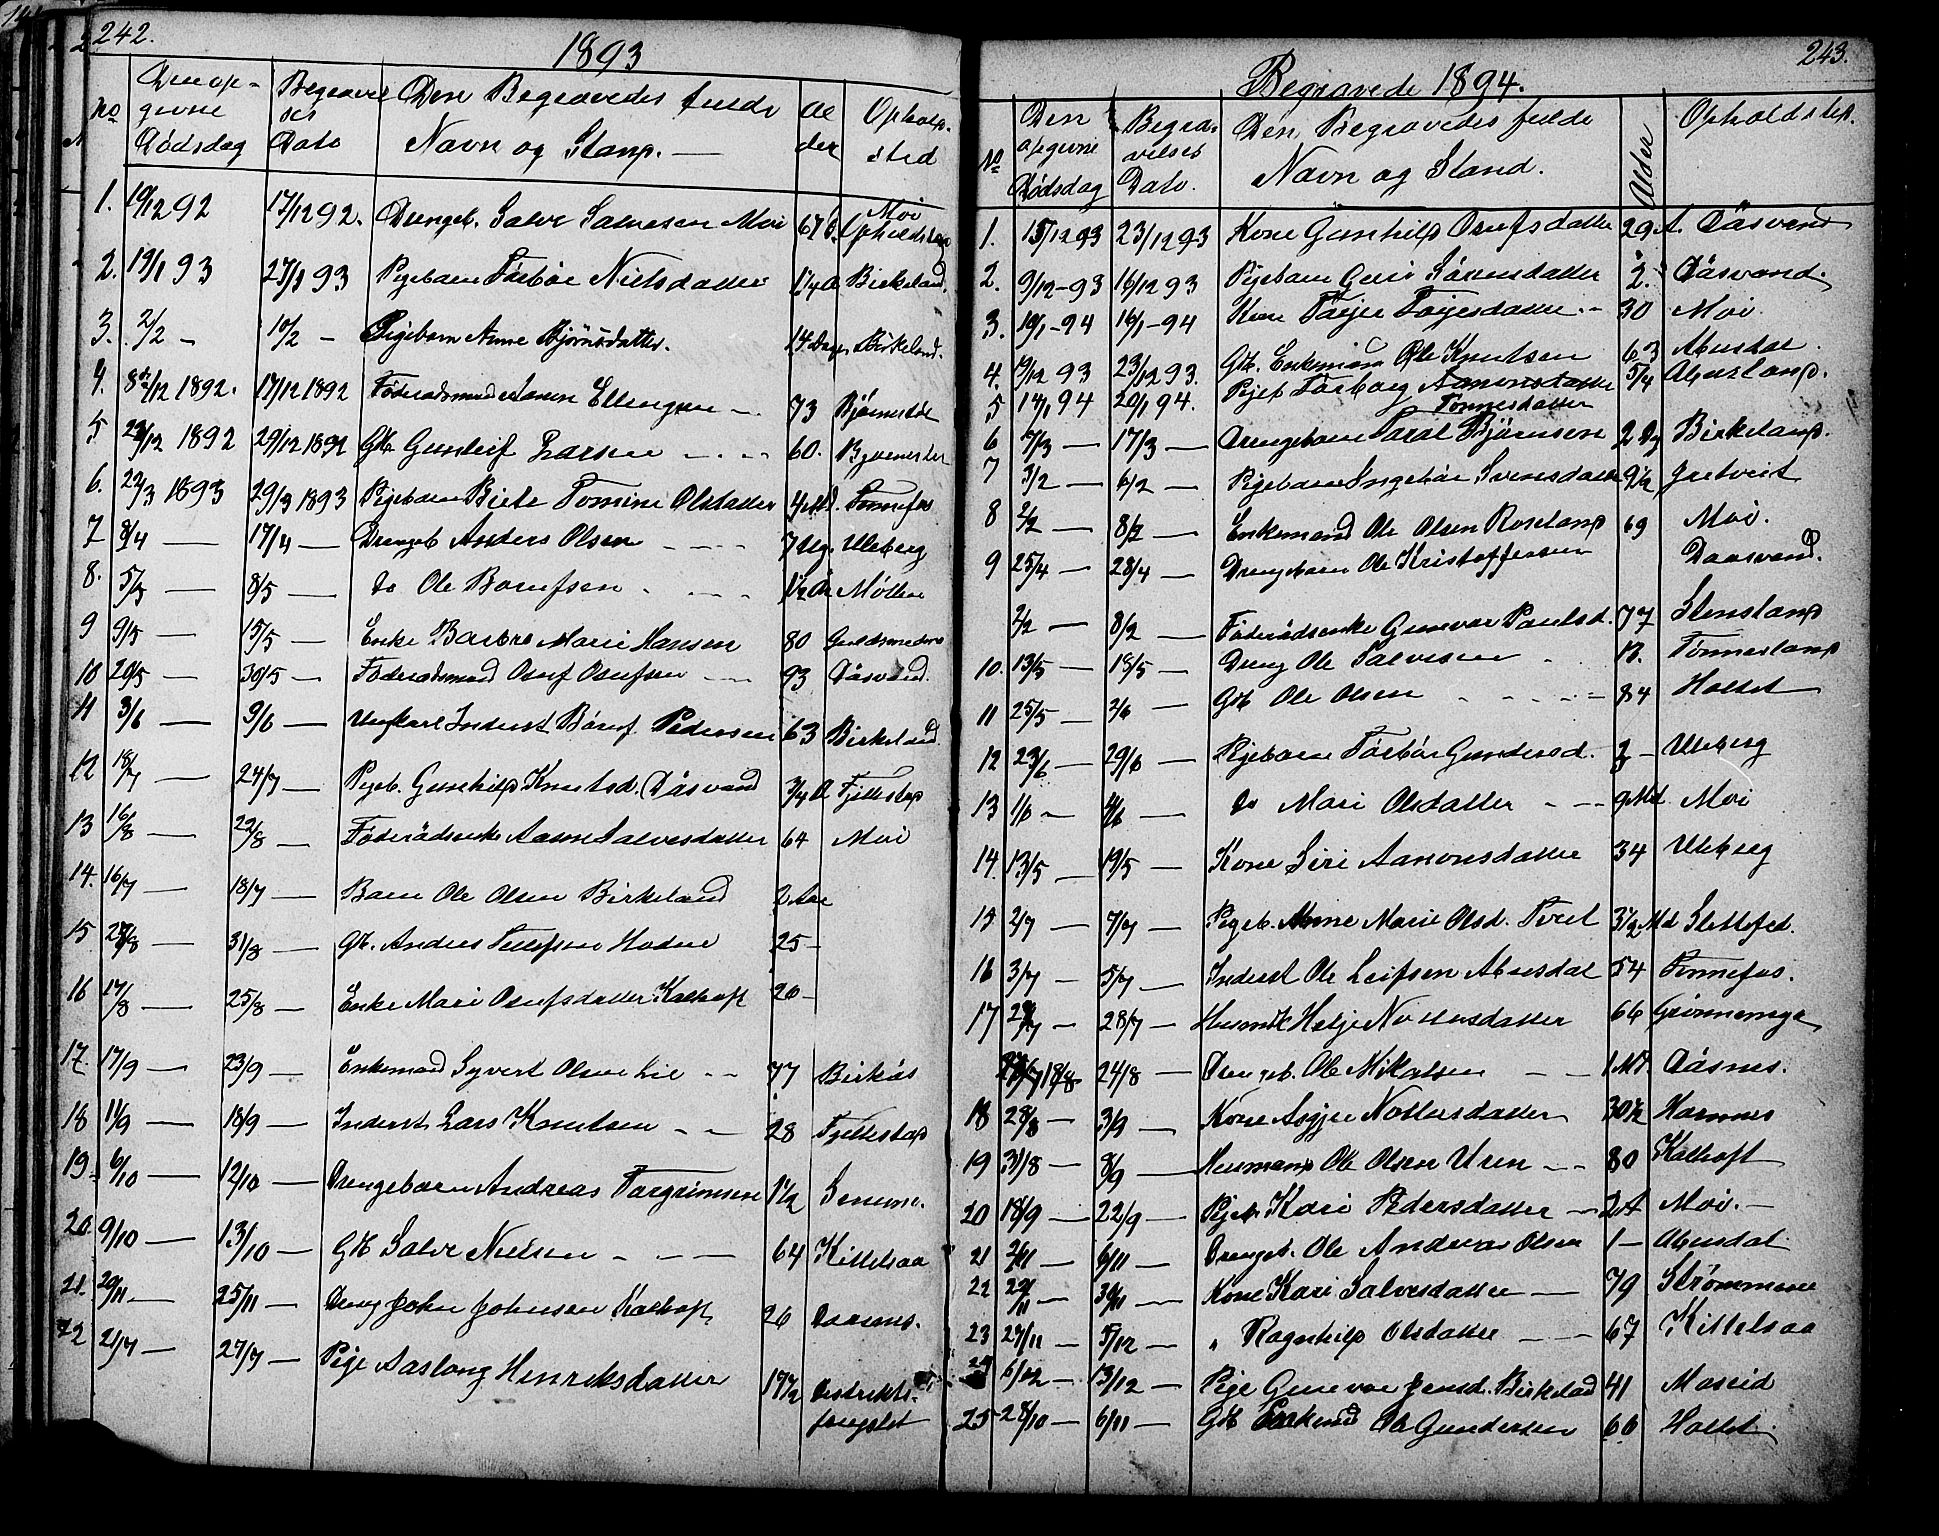 242.
1893
No
Den op-
givne
Dödsdag
Begravel
ses
Dato
Den Begravedes fulde
Navn og Stand. —
Al
der
Opholds.
sted
1. 10/12 92 17/12 92. Drengeb. Salve Salvesen Moi Moi
2. 19/1 93 27/1 93 Pigebarn Torbör Nielsdatter 1 1/4 A Birkeland.
3. 2/2 — 10/2 — Pigebarn Anne Björnsdatter. 14 Dage Birkeland.
4. 8/12 1892. 17/12 1892 Föderaadsmand Aanen Ellingsen — 73
5 23/12 1892 29/12 1892 Gk Gunleif Larsen — 60.
6. 22/3 1893 29/3 1893 Pigebarn Birte Tomine Olsdatter 4 Md. Tonnefos
7 8/4 — 17/4 — Drengeb Anders Olsen 7 Ug. Uleberg
8. 5/5 — 8/5 — do Ole Borufsen 1 1/2 Aar Möllen
9 9/5 — 15/5 — Enke Barbro Marie Hansen 80
10 20/5 — 30/5 — Föderaadsmand Osuf Osufsen 93 Dåsvand.
11 3/6 — 9/6 — Ungkarl Inderst Böruf Pedersen 63 Birkeland.
12 18/7 — 24/7 — Pigeb. Gunhild Knutsd. Dåsvand 3/4 A Fjellestad
13 16/8 — 22/8 — Föderådsenke Aasne Salvesdatter 64 Moi
14. 16/7 — 18/7 — Barn Ole Olsen Birkeland 2 Aar
15 28/8 — 31/8 — Gk. Anders Tellefsen Hodne 25 —
16 17/8 — 25/8 — Enke Mari Osufsdatter Kaltoft 26 —
17. 17/9 — 23/9 — Enkemand Syvert Olsen Lie 77 Birkås
18 11/9 — 18/9 — Inderst Lars Knutsen 28 Fjellestad
19. 6/10 — 12/10 — Drengebarn Andreas Torgrimsen 1 1/2 Senum.
20. 9/10 — 13/10 — Gk Salve Nielsen 64 Kittelsaa
21. 20/11 — 25/11 — Dreng John Johnsen Kaltoft 26
22 21/7 — 27/7 — Pige Aaslaug Henriksdatter 17 1/2 Distrikts-
fængslet
243.
Begravede 1894.
No
Den
opgivne
Dödsdag
Begra-
velses
Dato.
Den Begravedes fulde
Navn og Stand.
Alder
Opholdsted.
1. 15/12 93 23/12 93 Kone Gunhild Osufsdatter 29 A. Dåsvand
2. 9/12 - 93 16/12 93 Pigebarn Guro Sörensdatter 2. Dåsvand.
3. 10/1 - 94 16/1 - 94 Kone Torjer Torjesdatter. 30 Moi.
4. 17/12 93 23/12 93. Gk. Enkemand Ole Knutsen 63 Abusdal.
5 14/1 94 20/1 94. Pigeb Torborg Aanonsdatter 5/4 Abusland.
Tonnesdatter
6 7/3 — 17/3 — Drengebarn Taral Björnsen 2 Dg Birkeland.
7 3/2 — 6/2 — Pigebarn Ingebör Svensdatter 9 1/2 Gretveit
8 2/2 — 8/2 — Enkemand Ole Olsen Roseland 69 Moi.
9 25/4 — 28/4 — Drengbarn Ole Kristoffersen Daasvand.
2/2 — 8/2 — Föderådsenke Gunvor Paulsd. 77 Stensland
10. 13/5 — 18/5 — Dreng Ole Salvesen 13. Tonnesland
11 25/5 — 2/6 — Gk Ole Olsen 84 Holtet
12 23/6 — 29/6 — Pigebarn Torbör Gundersd. 3 — Uleberg
13 1/6 — 4/6 — do Mari Olsdatter 9 Md. Moi
14. 13/5 — 19/5 — Kone Siri Aanonsdatter 34 Uleberg
15 2/7 — 7/7 — Pigeb. Anne Marie Olsd. Tveit 3 1/2 Md Slettefed.
16 3/7 — 5/7 — Inderst Ole Leifsen Abusdal 54 Tonnefos.
17 23/7 — 28/7 — Husmk Helje Nottosdatter 66
18/8 24/8 — Drengeb. Ole Mikalsen 1 Md. Dåsnes.
18 28/8 — 3/9 — Kone Asgjer Nottosdatter 30 1/2 Hamnes
19 31/8 — 8/9 — Husmand Ole Olsen Uren 80 Kaltoft
20 18/9 — 22/9 — Pigeb Kari Pedersdatter — 2 A Moi. —
21 2/11 6/11 — Drengeb. Ole Andreas Olsen 1 — Abusdal
22 22/11 — 30/11 — Kone Kari Salvesdatter — 79 Strömmene
23 27/11 — 5/12 — " Ragnhild Olsdatter — 67 Kittelsaa
24 6/12 — 13/12 — Pige Gunvor Jensd. Birkelad 41 Moseid
25 28/10 — 6/11 — Gk Enkemd Ole Gundersen 66 Holtet.